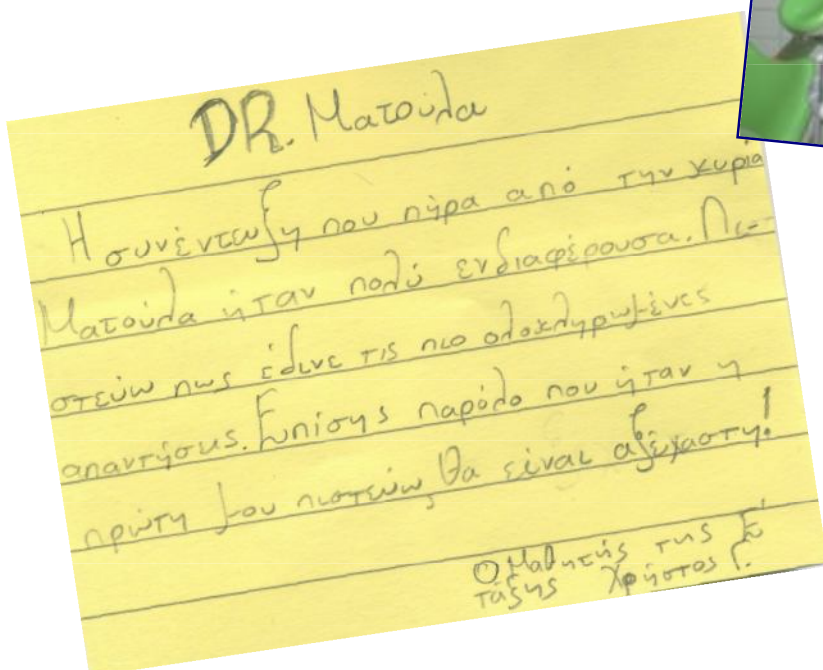 DR. Ματούλα
Η συνέντευξη που πήρα από την κυρία
Ματούλα ήταν πολύ ενδιαφέρουσα. Πι-
στεύω πως έδινε τις πιο ολοκληρωμένες
απαντήσεις. Επίσης παρόλο που ήταν η
πρώτη μου πιστεύω, θα είναι αξέχαστη!
Ο Μαθητής της Ε'
τάξης Χρήστος Γ.